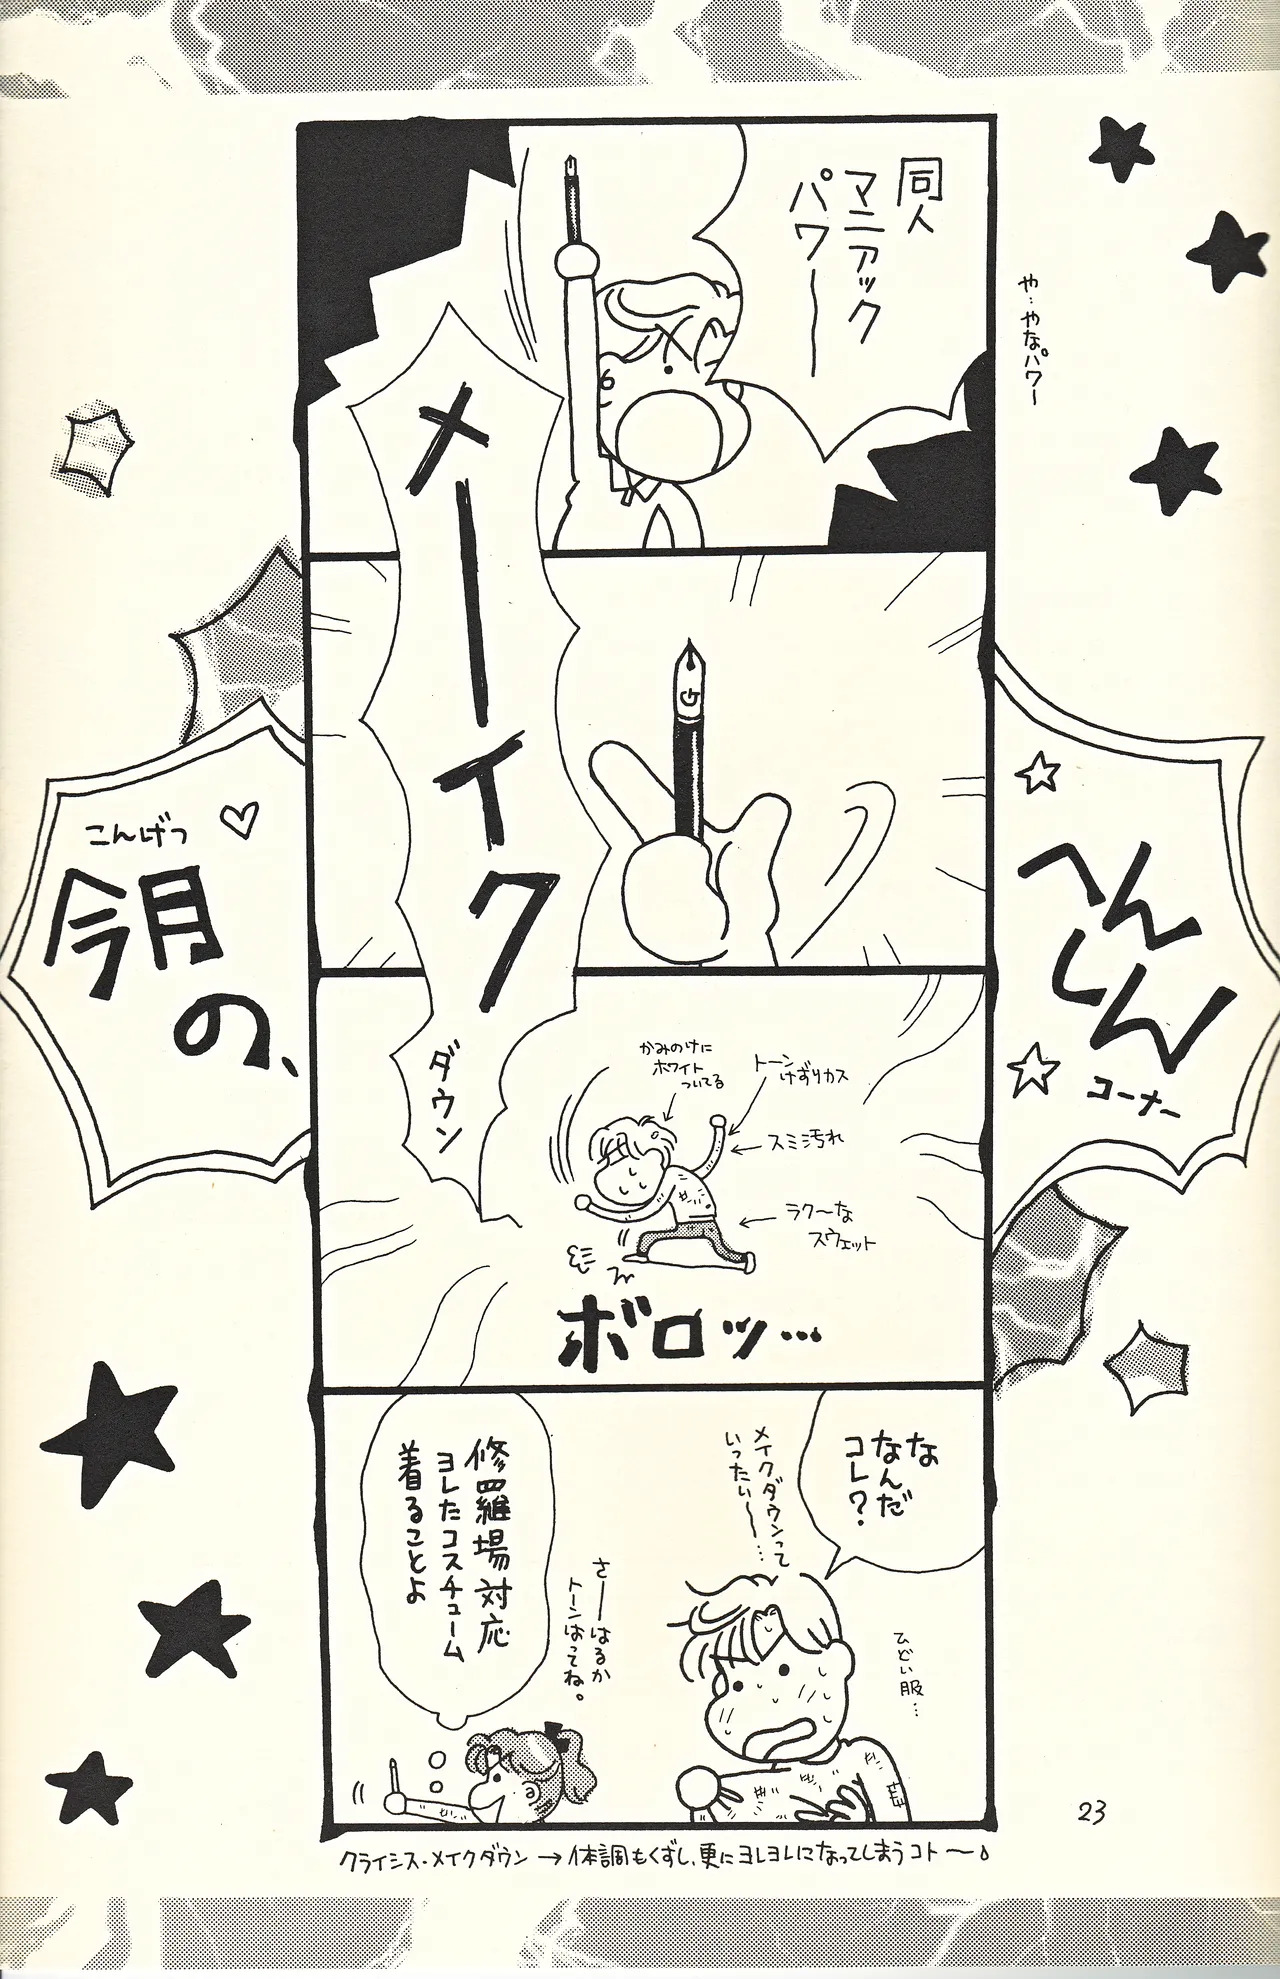 今月の、
こんげつ
へんしん
コーナー
同人
マニアック
パワー
や…やなパワー
メーイク
ダウン
かみのけに
ホワイト
ついてる
トーン
けずりカス
スミ汚れ
ラク〜な
スウェット
ボロッ…
な
なんだ
コレ?
メイクダウンって
いったい〜…
ひどい服…
さーはるか
トーンはってね。
修羅場対応
ヨレたコスチューム
着ることよ
クライシス・メイクダウン→体調もくずし、更にヨレヨレになってしまうコト〜
23